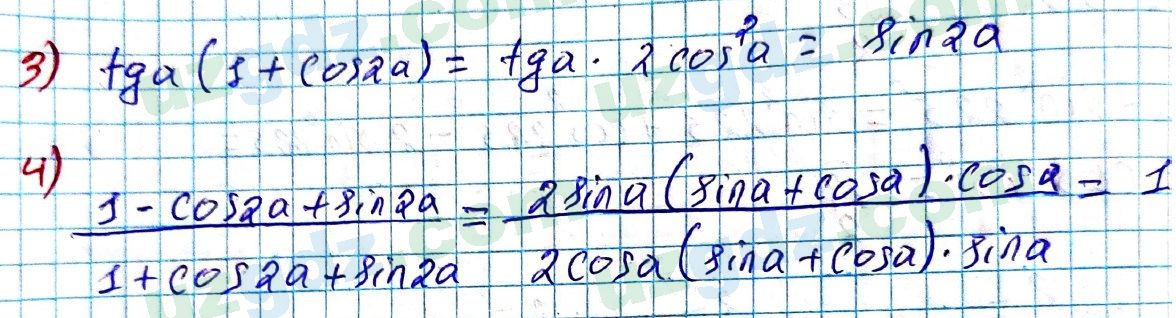 3) tga(1+cos2a) = tga · 2cos²a = sin2a
4) (1 - cos2a + sin2a)/(1 + cos2a + sin2a) = (2sina(sina+cosa)·cosa)/(2cosa(sina+cosa)·sina) = 1
uzgdz.com